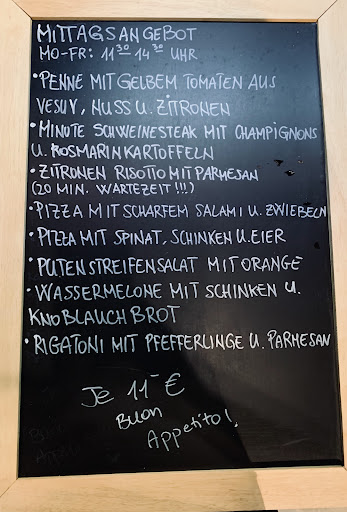 MITTAGSANGEBOT
MO-FR: 11³⁰ 14³⁰ UHR
• PENNE MIT GELBEM TOMATEN AUS
VESUV, NUSS U. ZITRONEN
• MINUTE SCHWEINESTEAK MIT CHAMPIGNONS
U. ROSMARINKARTOFFELN
• ZITRONEN RISOTTO MIT PARMESAN
(20 MIN. WARTEZEIT!!!)
• PIZZA MIT SCHARFEM SALAMI U. ZWIEBELN
• PIZZA MIT SPINAT, SCHINKEN U. EIER
• PUTENSTREIFENSALAT MIT ORANGE
• WASSERMELONE MIT SCHINKEN U.
KNOBLAUCHBROT
• RIGATONI MIT PFEFFERLINGE U. PARMESAN
Je 11⁻ €
Buon
Appetito!